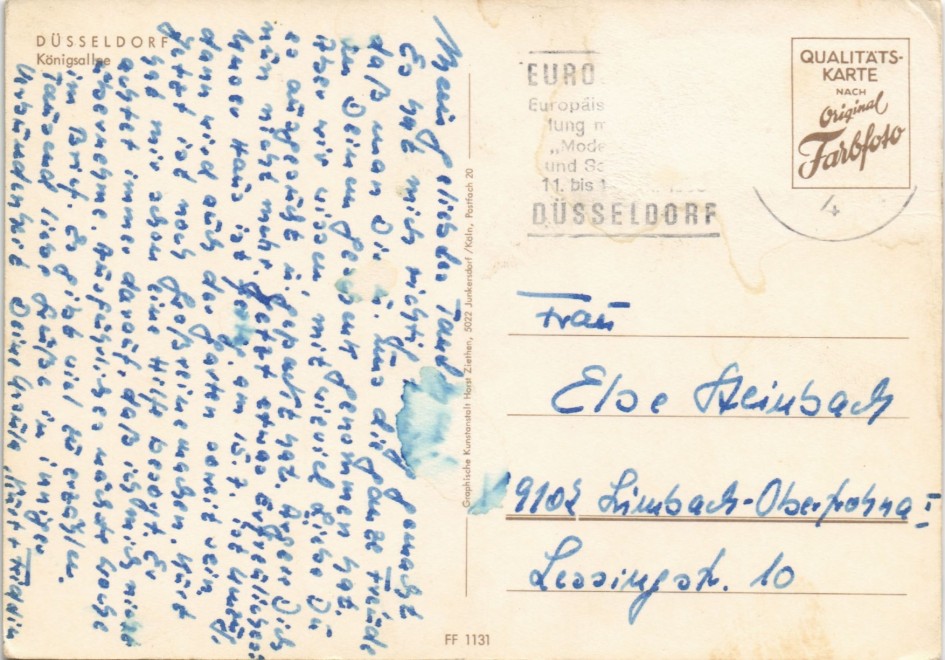 DÜSSELDORF
Königsallee
Mein geliebtes
Es hat mich richtig gemacht
daß man Dir u. uns die ganze Freude
an Deinem Geschenk genommen hat.
Aber wir wissen, mit wieviel Liebe Du
es ausgesucht u. gepackt hast. Ärgere Dich
nun nicht mehr. Jetzt etwas Erfreuliches:
Unser Haus ist fertig, am 15.7. ist Umzug,
dann wird auch der Garten soweit sein.
Jetzt ist noch Großreinemachen. Kurt
hat mir schon eine Hilfe besorgt. Er
achtet immer darauf, daß ich mich nicht
übernehme. Ausführliches nächste Woche
im Brief. Es gibt viel zu erzählen.
Tausend liebe Grüße in inniger
Verbundenheit Deine Kurt +
Graphische Kunstanstalt Horst Ziethen, 5022 Junkersdorf/Köln, Postfach 20
FF 1131
EURO
Europäis
lung m
„Mode
und S
11. bis 1
DÜSSELDORF
QUALITÄTS-
KARTE
NACH
Original
Farbfoto
4
Frau
Else Steinbach
9102 Limbach-Oberfrohna I
Lessingstr. 10